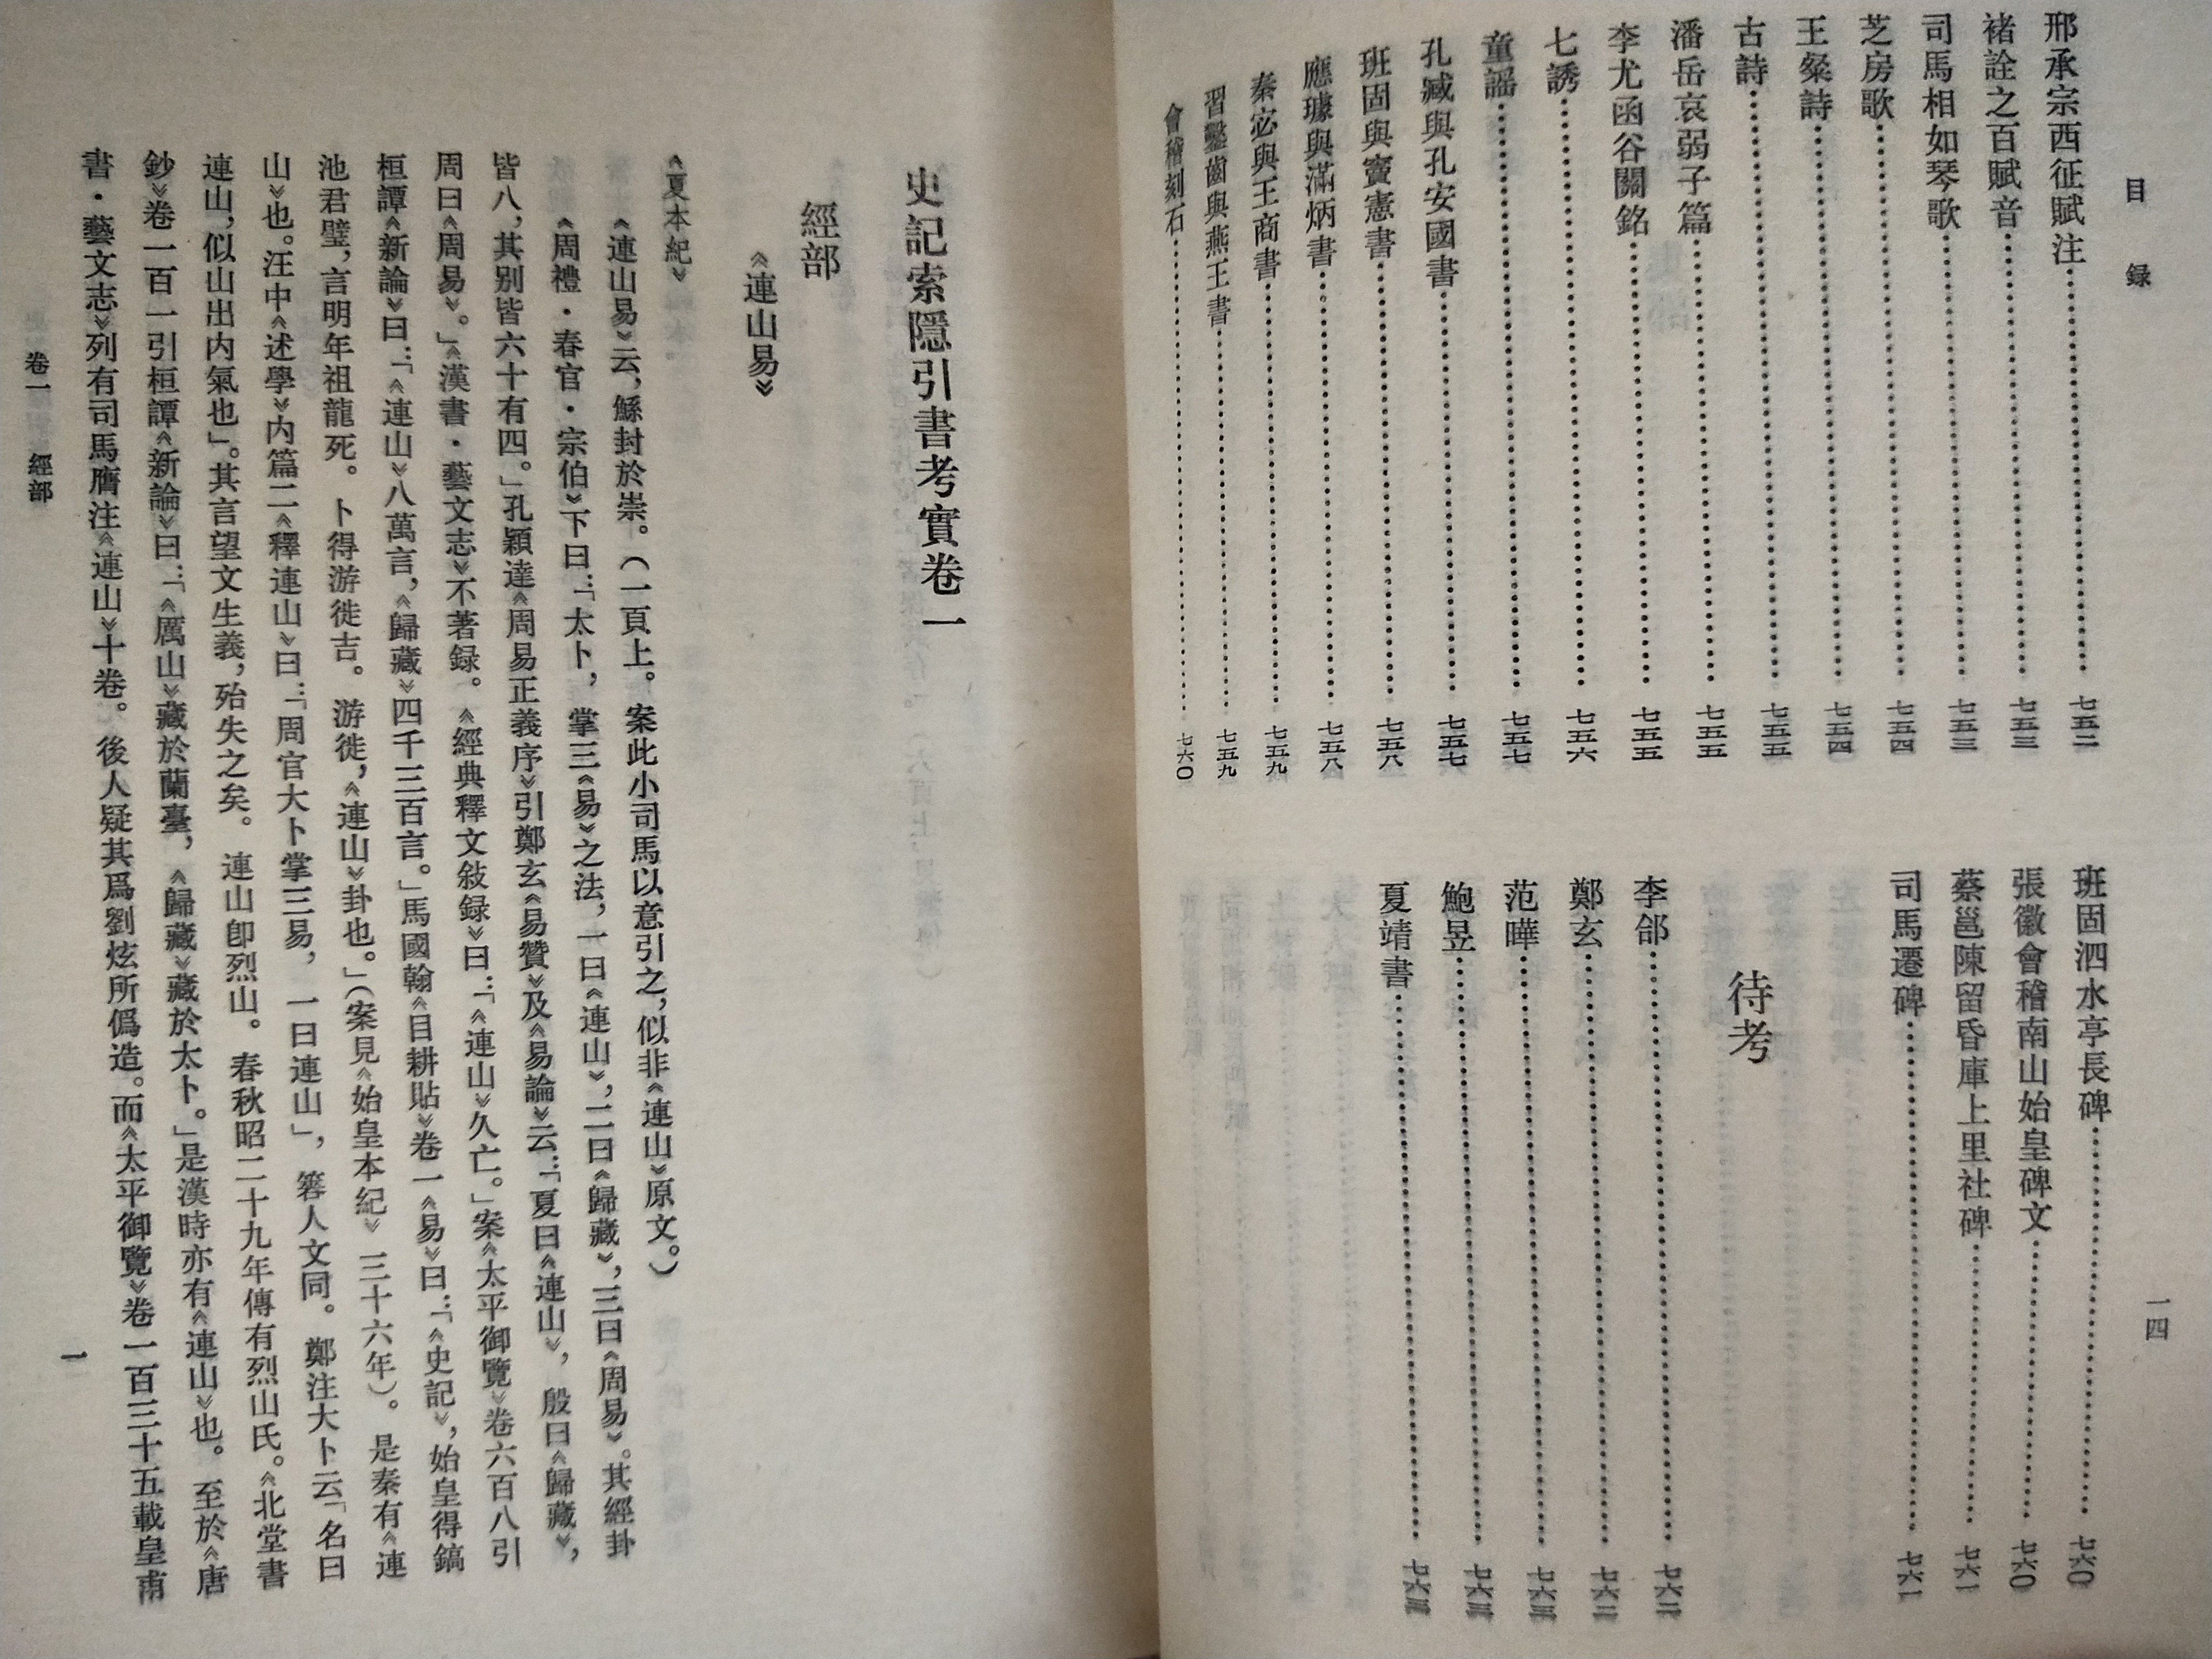 目 録
邢承宗西征賦注……七五二
褚詮之百賦音……七五三
司馬相如琴歌……七五三
芝房歌……七五四
王粲詩……七五四
古詩……七五五
潘岳哀弱子篇……七五五
李尤函谷關銘……七五五
七誘……七五六
童謡……七五七
孔臧與孔安國書……七五七
班固與竇憲書……七五八
應璩與滿炳書……七五八
秦宓與王商書……七五九
習鑿齒與燕王書……七五九
會稽刻石……七六〇
班固泗水亭長碑……七六〇
張徽會稽南山始皇碑文……七六〇
蔡邕陳留昏庫上里社碑……七六一
司馬遷碑……七六一
待考
李郃……七六二
鄭玄……七六二
范曄……七六三
鮑昱……七六三
夏靖書……七六三
一四
史記索隱引書考實卷一
經部
《連山易》
《夏本紀》
《連山易》云,鯀封於崇。(一頁上。案此小司馬以意引之,似非《連山》原文。)
《周禮·春官·宗伯》下曰:「太卜,掌三《易》之法,一曰《連山》,二曰《歸藏》,三曰《周易》。其經卦
皆八,其别皆六十有四。」孔穎達《周易正義序》引鄭玄《易贊》及《易論》云:「夏曰《連山》,殷曰《歸藏》,
周曰《周易》。」《漢書·藝文志》不著録。《經典釋文敍録》曰:「《連山》久亡。」案《太平御覽》卷六百八引
桓譚《新論》曰:「《連山》八萬言,《歸藏》四千三百言。」馬國翰《目耕貼》卷一《易》曰:「《史記》,始皇得鎬
池君璧,言明年祖龍死。卜得游徙吉。游徙,《連山》卦也。」(案見《始皇本紀》三十六年)。是秦有《連
山》也。汪中《述學》内篇二《釋連山》曰:「周官大卜掌三易,一曰連山」,簭人文同。鄭注大卜云「名曰
連山,似山出内氣也」。其言望文生義,殆失之矣。連山卽烈山。春秋昭二十九年傳有烈山氏。《北堂書
鈔》卷一百一引桓譚《新論》曰:「《厲山》藏於蘭臺,《歸藏》藏於太卜。」是漢時亦有《連山》也。至於《唐
書·藝文志》列有司馬膺注《連山》十卷。後人疑其爲劉炫所僞造。而《太平御覽》卷一百三十五載皇甫
卷一 經部
一